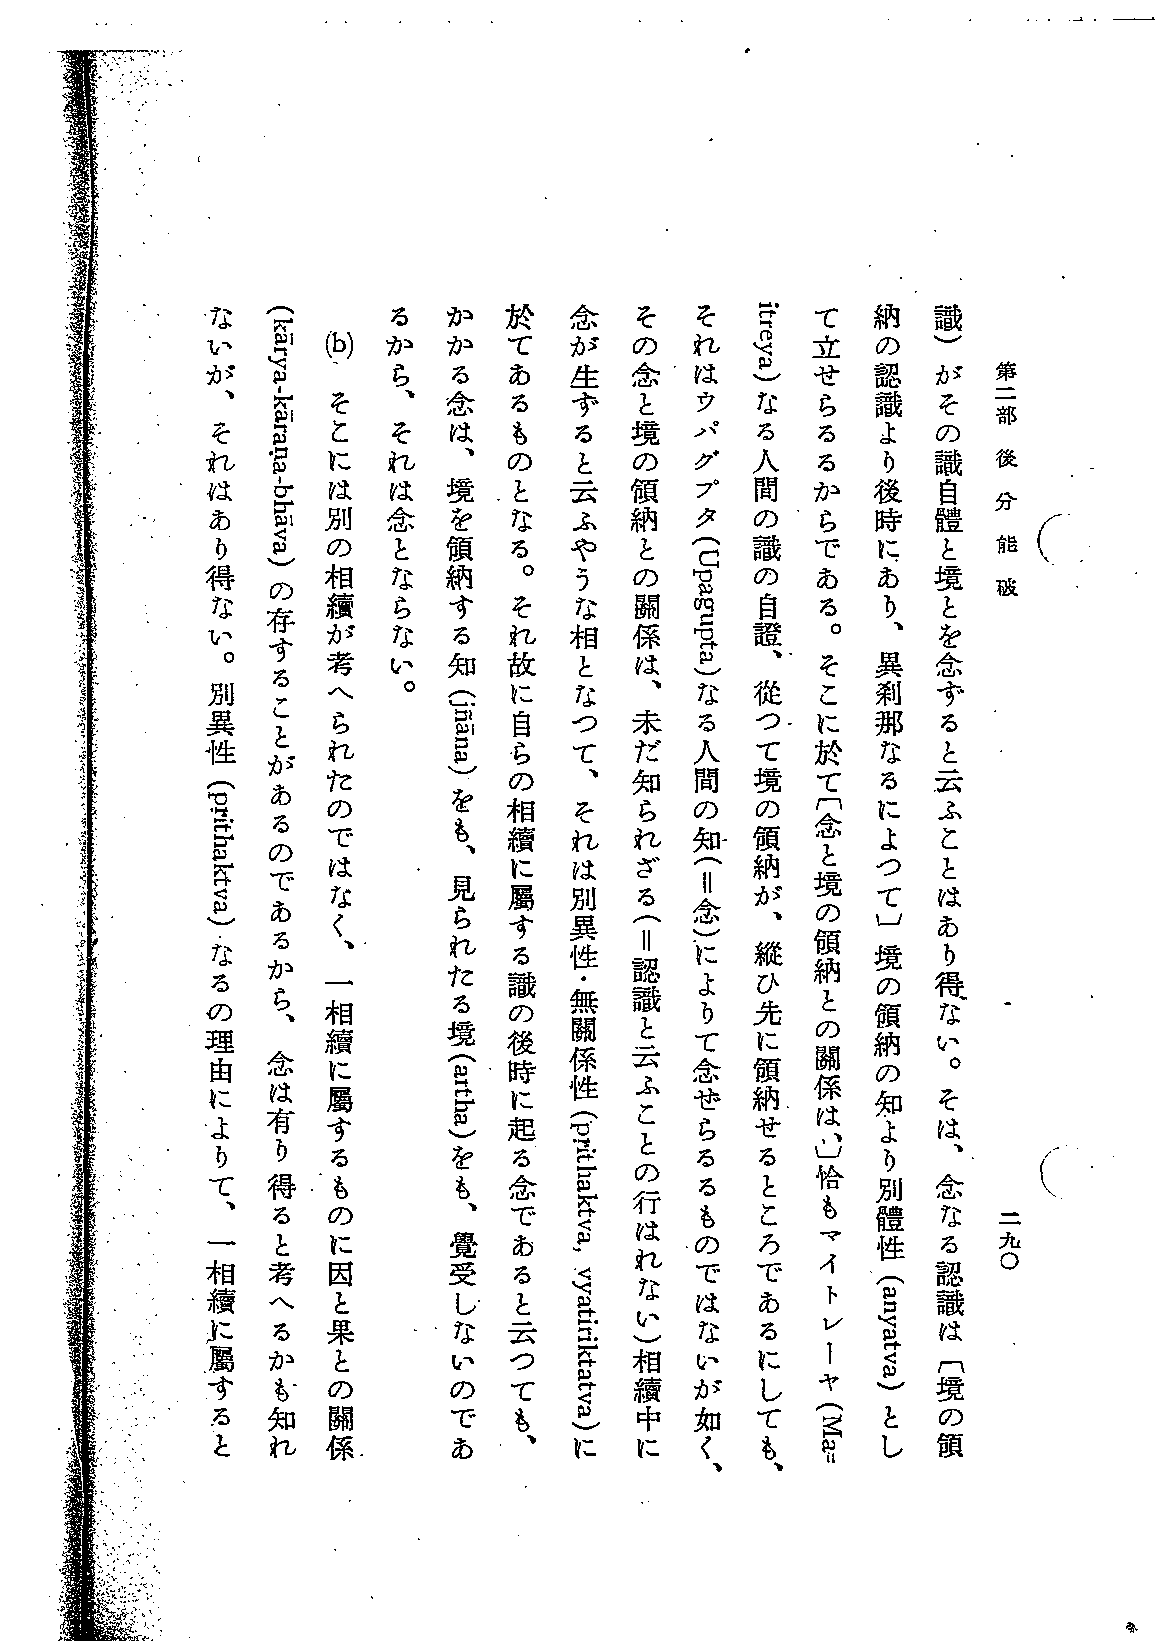 第二部 後分能破
二九〇
識）がその識自體と境とを念ずると云ふことはあり得ない。そは、念なる認識は〔境の領
納の認識より後時にあり、異刹那なるによつて〕境の領納の知より別體性 (anyatva) とし
て立せらるるからである。そこに於て〔念と境の領納との關係は、〕恰もマイトレーヤ (Ma=
itreya) なる人間の識の自證、從つて境の領納が、縱ひ先に領納せるところであるにしても、
それはウパグプタ (Upagupta) なる人間の知（＝念）によりて念せらるるものではないが如く、
その念と境の領納との關係は、未だ知られざる（＝認識と云ふことの行はれない）相續中に
念が生ずると云ふやうな相となつて、それは別異性・無關係性 (pṛithaktva, vyatiriktatva) に
於てあるものとなる。それ故に自らの相續に屬する識の後時に起る念であると云つても、
かかる念は、境を領納する知 (jñāna) をも、見られたる境 (artha) をも、覺受しないのであ
るから、それは念とならない。
(b) そこには別の相續が考へられたのではなく、一相續に屬するものに因と果との關係
(kārya-kāraṇa-bhāva) の存することがあるのであるから、念は有り得ると考へるかも知れ
ないが、それはあり得ない。別異性 (pṛithaktva) なるの理由によりて、一相續に屬すると